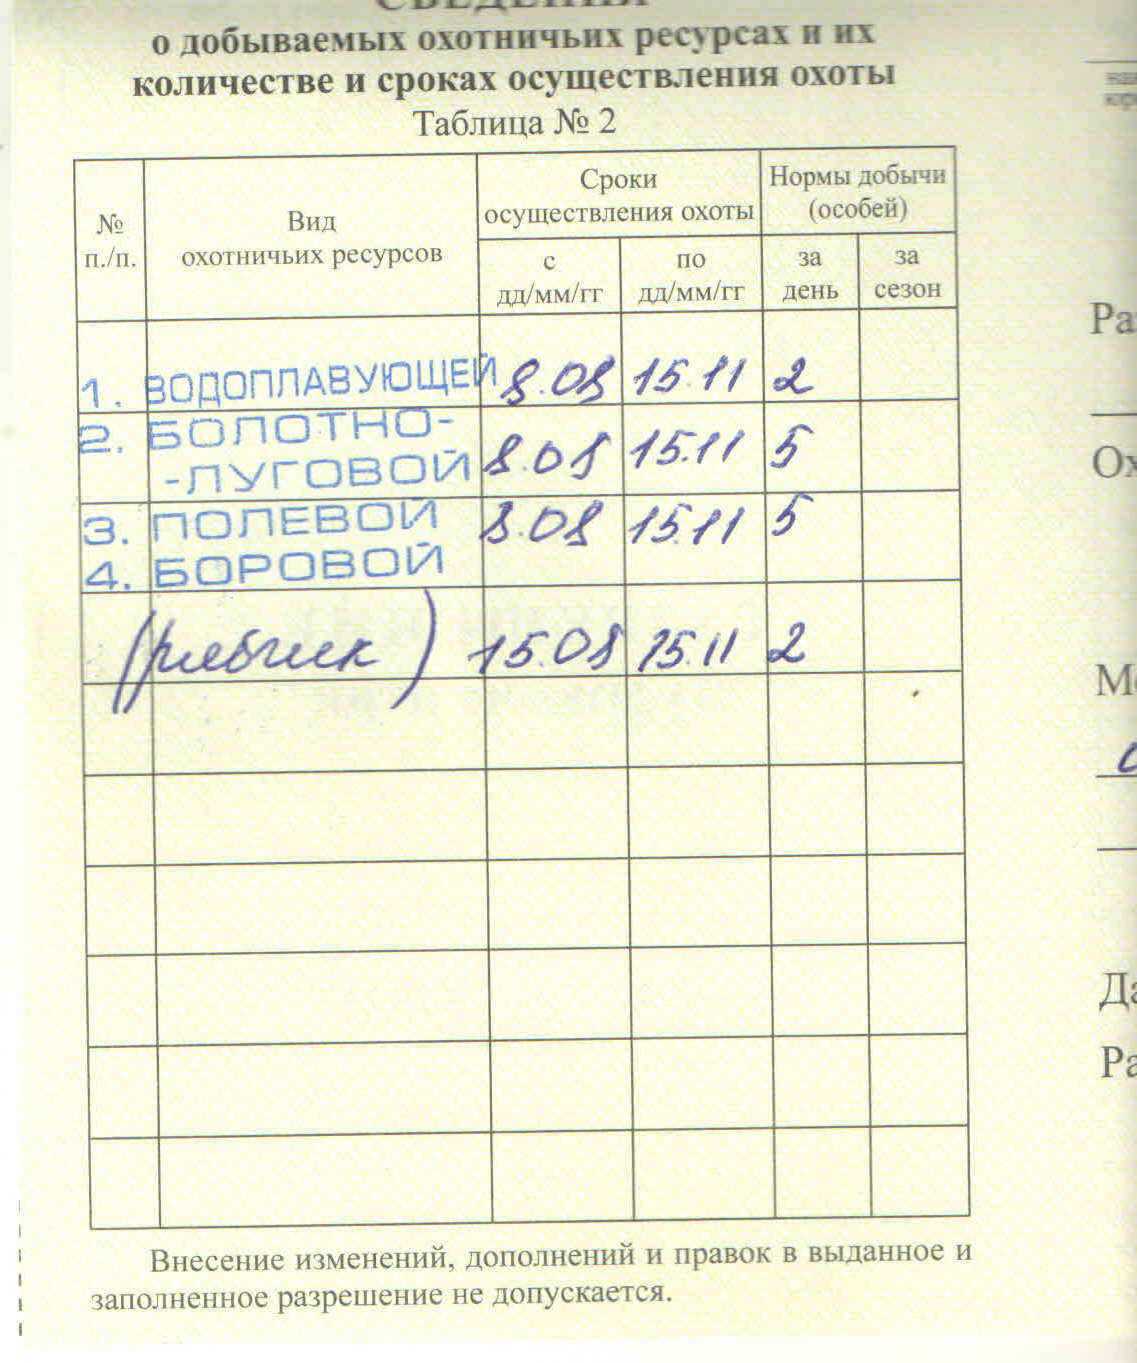 СВЕДЕНИЯ
о добываемых охотничьих ресурсах и их
количестве и сроках осуществления охоты
Таблица № 2
№ п./п.
Вид охотничьих ресурсов
Сроки осуществления охоты
Нормы добычи (особей)
с дд/мм/гг
по дд/мм/гг
за день
за сезон
1. ВОДОПЛАВУЮЩЕЙ 8.08 15.11 2
2. БОЛОТНО-
-ЛУГОВОЙ 8.08 15.11 5
3. ПОЛЕВОЙ 8.08 15.11 5
4. БОРОВОЙ
(рябчик) 15.08 15.11 2
Внесение изменений, дополнений и правок в выданное и
заполненное разрешение не допускается.
Ра
Ох
Да
Ра